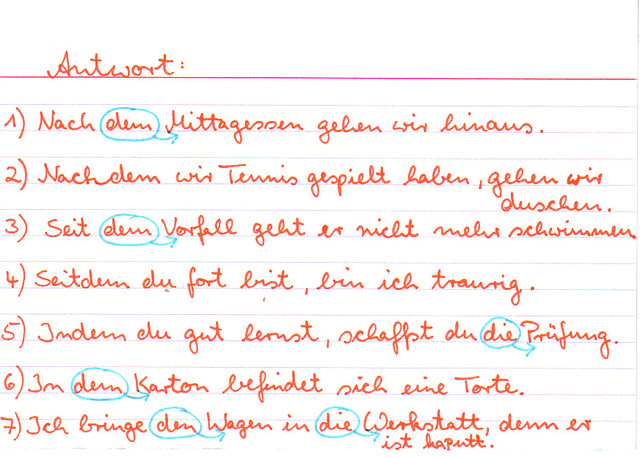 Antwort:
1) Nach dem Mittagessen gehen wir hinaus.
2) Nachdem wir Tennis gespielt haben, gehen wir
duschen.
3) Seit dem Vorfall geht er nicht mehr schwimmen.
4) Seitdem du fort bist, bin ich traurig.
5) Indem du gut lernst, schaffst du die Prüfung.
6) In dem Karton befindet sich eine Torte.
7) Ich bringe den Wagen in die Werkstatt, denn er
ist kaputt.